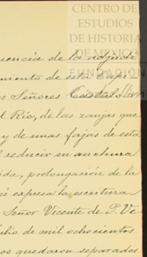 CENTRO DE
ESTUDIOS
DE HISTORIA
DE MEXICO
cuencia de la
mento de esta
os Señores
l Rio, de las zanjas que
y de mas fajas de esta
l reducir su anchura
ide, prolongacion de la
i espresa la escritura
Señor Vicente de P. Ve
ulio de mil ochocientos
os quedaron separados